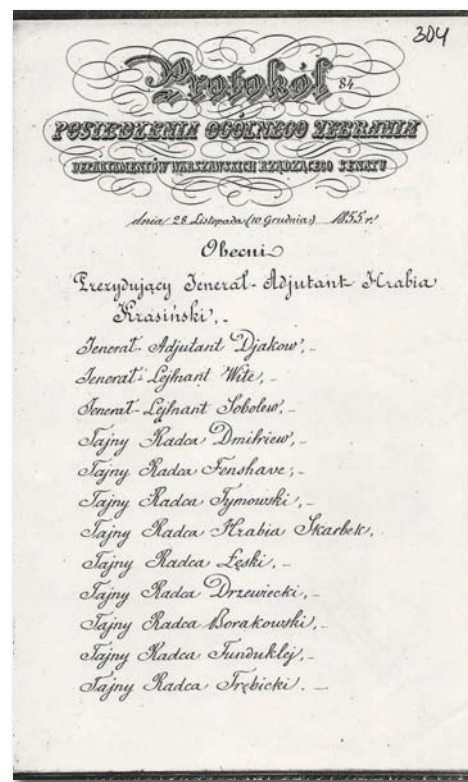 304
Protokół 84
POSIEDZENIA OGÓLNEGO ZEBRANIA
DEPARTAMENTÓW WARSZAWSKICH RZĄDZĄCEGO SENATU
dnia 28 Listopada (10 Grudnia) 1855 r.
Obecni
Prezydujący Jenerał-Adjutant Hrabia
Krasiński,-
Jenerał-Adjutant Djakow,-
Jenerał-Lejtnant Witte,-
Jenerał-Lejtnant Sobolew,-
Tajny Radca Dmitriew,-
Tajny Radca Fenshave,-
Tajny Radca Tymowski,-
Tajny Radca Hrabia Skarbek,
Tajny Radca Łęski,-
Tajny Radca Drzewiecki,-
Tajny Radca Borakowski,-
Tajny Radca Funduklej,-
Tajny Radca Trębicki.-